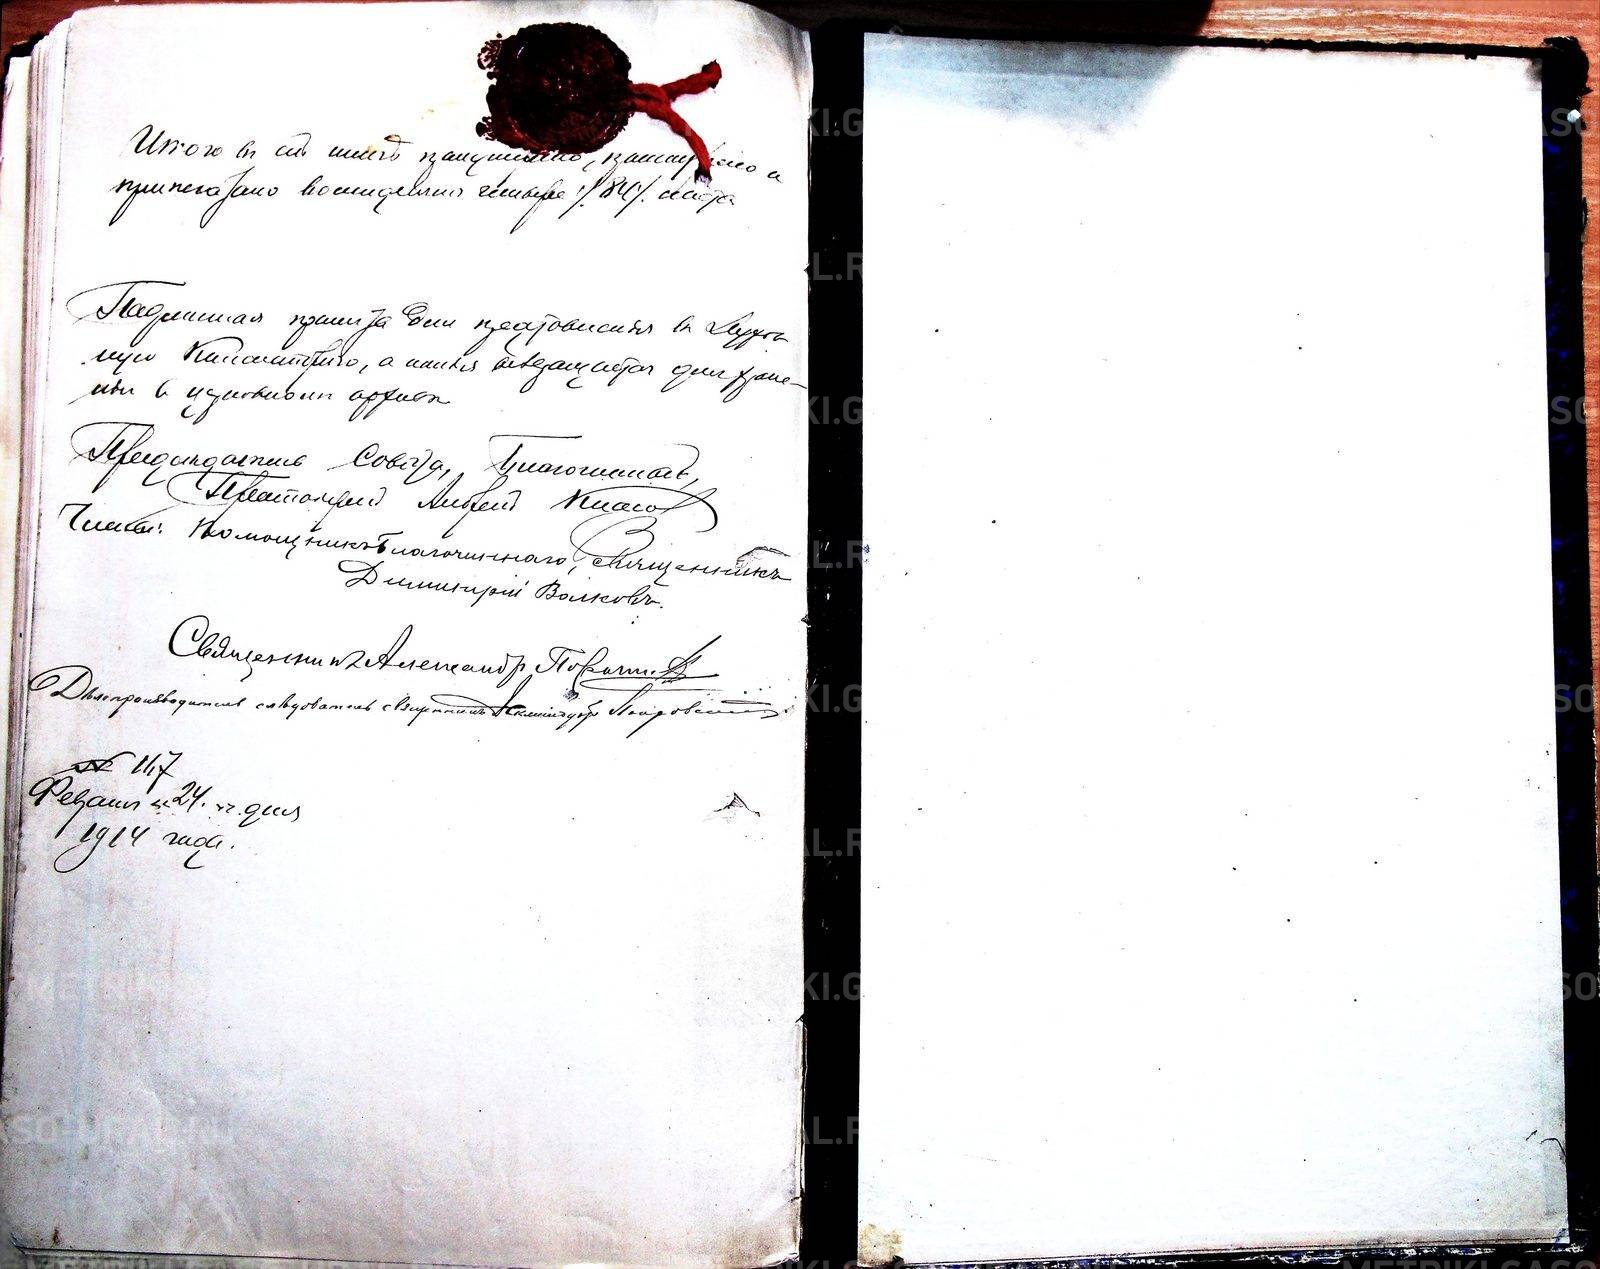 Итого въ сей книгѣ пронумеровано, прошнуровано и
припечатано восемьдесятъ четыре /84/. листа
Подлинная книга сия представлена въ Духов-
ную Консисторію, а копія возвращается для хране-
нія въ церковномъ архивѣ
Предсѣдатель Совѣта, Благочинный,
Протоіерей Андрей
Члены: Помощникъ Благочиннаго, Священникъ
Димитрій Волковъ.
Священникъ Александръ
Дѣлопроизводитель слѣдователь священникъ Александръ Покровскій
№ 117
Февраля "24" дня
1914 года.
METRIKI.GASO-URAL.RU